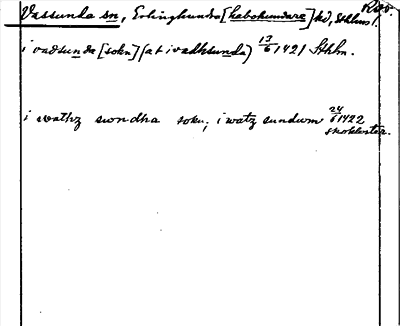 Rov.
Vassunda sn, Erlinghundra [habohundare] hd, Sthlms l.
i vadsunda [sokn] (at i vadhsunda) 13/6 1421 Sthlm.
i wathz swndha sokn; i watz sundwm 24/6 1422
skokloster.